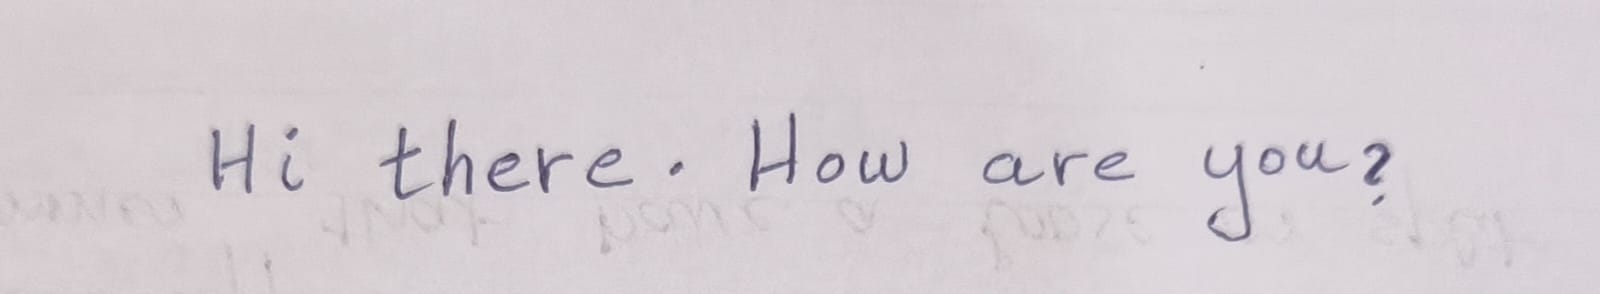 Hi there. How are you?